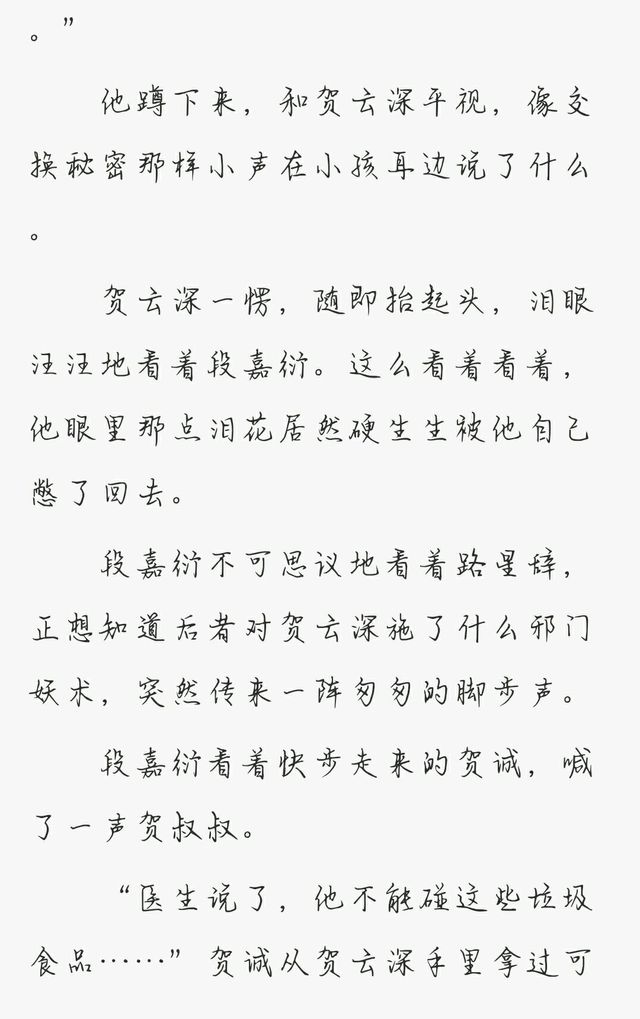 。”
他蹲下来，和贺云深平视，像交
换秘密那样小声在小孩耳边说了什么
。
贺云深一愣，随即抬起头，泪眼
汪汪地看着段嘉衍。这么看着看着，
他眼里那点泪花居然硬生生被他自己
憋了回去。
段嘉衍不可思议地看着路星辞，
正想知道后者对贺云深施了什么邪门
妖术，突然传来一阵匆匆的脚步声。
段嘉衍看着快步走来的贺诚，喊
了一声贺叔叔。
“医生说了，他不能碰这些垃圾
食品……”贺诚从贺云深手里拿过可